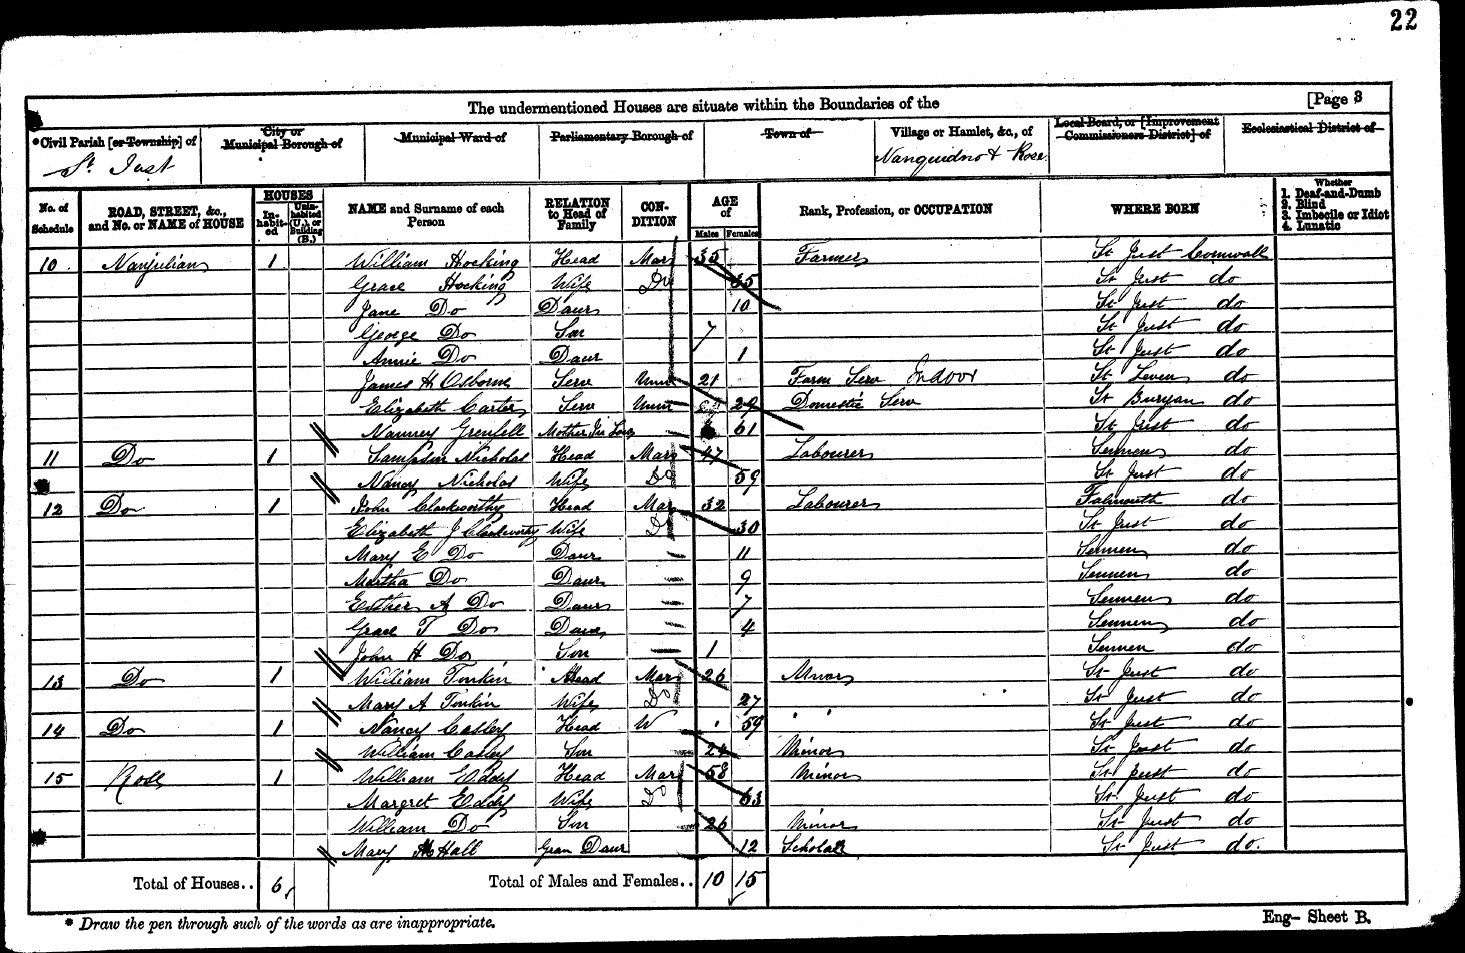 22
The undermentioned Houses are situate within the Boundaries of the [Page 3
*Civil Parish [or Township] of City or Municipal Borough of Municipal Ward of Parliamentary Borough of Town of Village or Hamlet, &c., of Local Board, or [Improvement Commissioners District] of Ecclesiastical District of
St. Just Nanquidno & Rose
No. of Schedule ROAD, STREET, &c., and No. or NAME of HOUSE HOUSES In-habit-ed Unin-habited (U.), or Building (B.) NAME and Surname of each Person RELATION to Head of Family CON-DITION AGE of Males Females Rank, Profession, or OCCUPATION WHERE BORN Whether 1. Deaf-and-Dumb 2. Blind 3. Imbecile or Idiot 4. Lunatic
10 Nanjulian 1 William Hocking Head Mar 35 Farmer St Just Cornwall
Grace Hocking Wife Do 35 St Just do
Jane Do Daur 10 St Just do
George Do Son 7 St Just do
Annie Do Daur 1 St Just do
James H Osborne Serv Unm 21 Farm Serv Indoor St Leven do
Elizabeth Carter Serv Unm 29 Domestic Serv St Buryan do
Nanney Grenfell Mother In Law 61 St Just do
11 Do 1 Sampson Nicholas Head Mar 47 Labourer Sennen do
Nancy Nicholas Wife Do 59 St Just do
12 Do 1 John Clackworthy Head Mar 32 Labourer Falmouth do
Elizabeth J Clackworthy Wife Do 30 St Just do
Mary E Do Daur 11 Sennen do
Martha Do Daur 9 Sennen do
Esther A Do Daur 7 Sennen do
Grace T Do Daur 4 Sennen do
John H Do Son 1 Sennen do
13 Do 1 William Tonkin Head Mar 26 Minor St Just do
Mary A Tonkin Wife Do 27 St Just do
14 Do 1 Nancy Casley Head W 59 " " St Just do
William Casley Son 24 Minor St Just do
15 Rose 1 William Eddy Head Mar 58 Minor St Just do
Margret Eddy Wife Do 63 St Just do
William Do Son 26 Minor St Just do
Mary Hall Gran Daur 12 Scholar St Just do.
Total of Houses.. 6 Total of Males and Females.. 10 15
* Draw the pen through such of the words as are inappropriate. Eng- Sheet B.